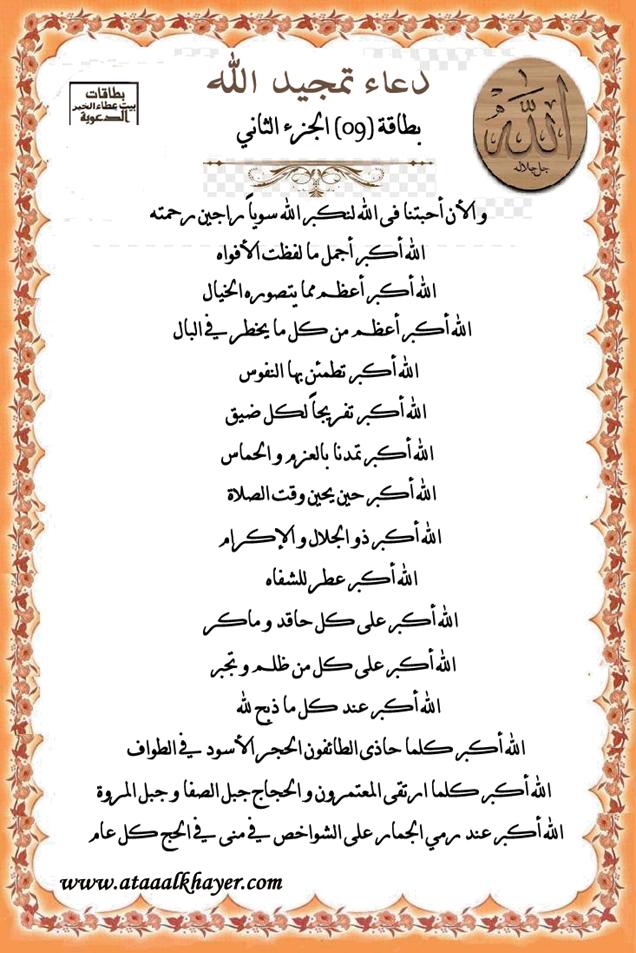 دعاء تمجيد الله
بطاقة (09) الجزء الثاني
بطاقات
بيت عطاء الخير
الدعوية
الله
جل جلاله
والأن أحبتنا فى الله لنكبر الله سوياً راجين رحمته
الله أكبر أجمل ما لفظت الأفواه
الله أكبر أعظم مما يتصوره الخيال
الله أكبر أعظم من كل ما يخطر في البال
الله أكبر تطمئن بها النفوس
الله أكبر تفريجاً لكل ضيق
الله أكبر تمدنا بالعزم والحماس
الله أكبر حين يحين وقت الصلاة
الله أكبر ذو الجلال والإكرام
الله أكبر عطر للشفاه
الله أكبر على كل حاقد وماكر
الله أكبر على كل من ظلم وتجبر
الله أكبر عند كل ما ذبح لله
الله أكبر كلما حاذى الطائفون الحجر الأسود في الطواف
الله أكبر كلما ارتقى المعتمرون والحجاج جبل الصفا وجبل المروة
الله أكبر عند رمي الجمار على الشواخص في منى في الحج كل عام
www.ataaalkhayer.com